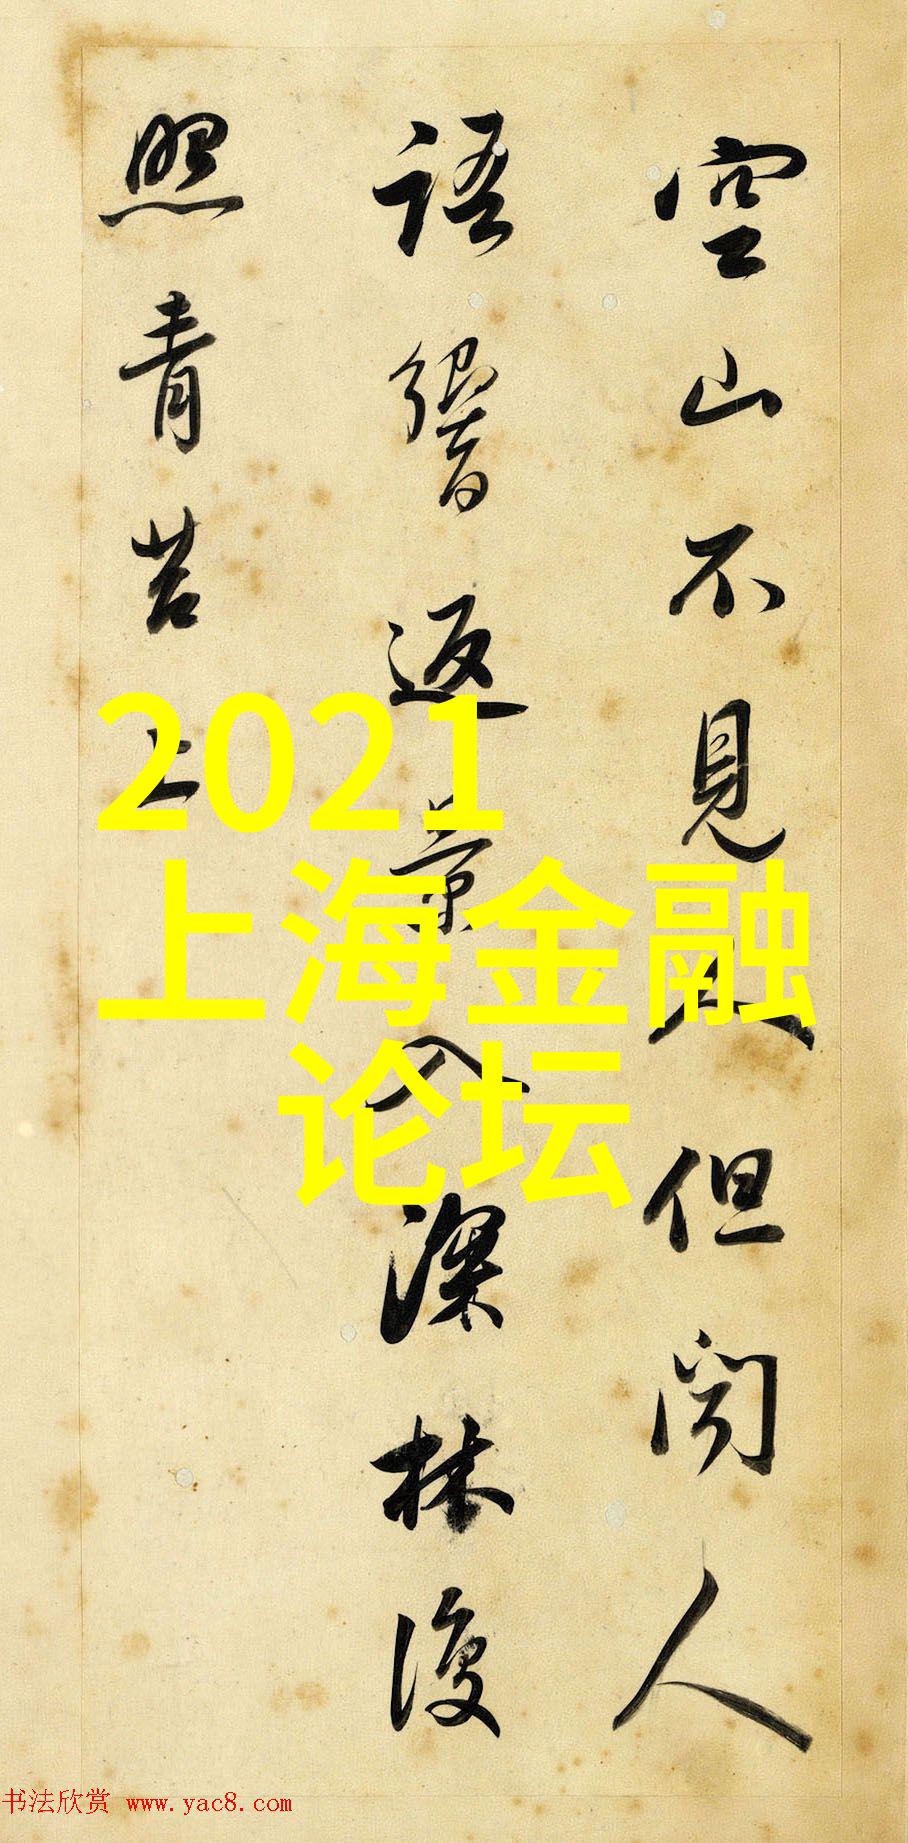 空山不見人但聞人
語響返景入深林復
照青苔上
2021
上海金融
论坛
书法欣赏 www.yac8.com